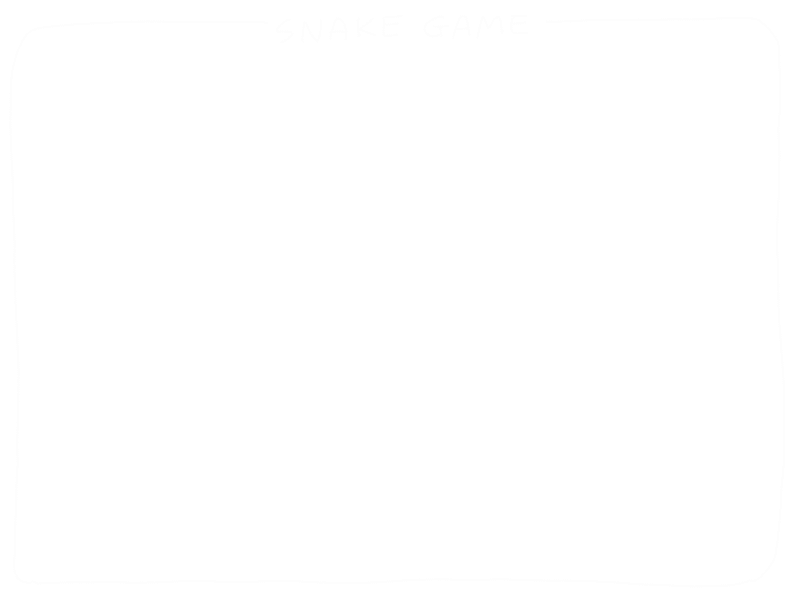 SNAKE GAME